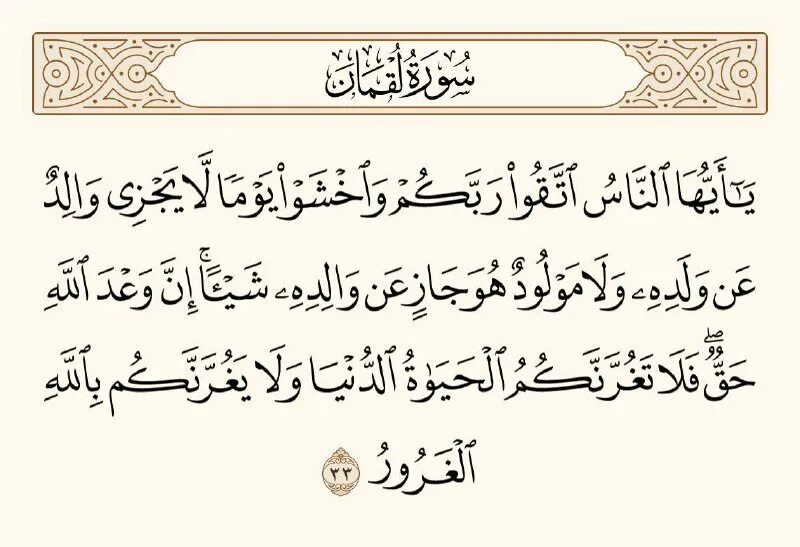 سُورَةُ لُقۡمَانَ
يَـٰٓأَيُّهَا ٱلنَّاسُ ٱتَّقُواْ رَبَّكُمۡ وَٱخۡشَوۡاْ يَوۡمًا لَّا يَجۡزِي وَالِدٌ
عَن وَلَدِهِۦ وَلَا مَوۡلُودٌ هُوَ جَازٍ عَن وَالِدِهِۦ شَيۡـًٔاۚ إِنَّ وَعۡدَ ٱللَّهِ
حَقّٞۖ فَلَا تَغُرَّنَّكُمُ ٱلۡحَيَوٰةُ ٱلدُّنۡيَا وَلَا يَغُرَّنَّكُم بِٱللَّهِ
ٱلۡغَرُورُ ٣٣